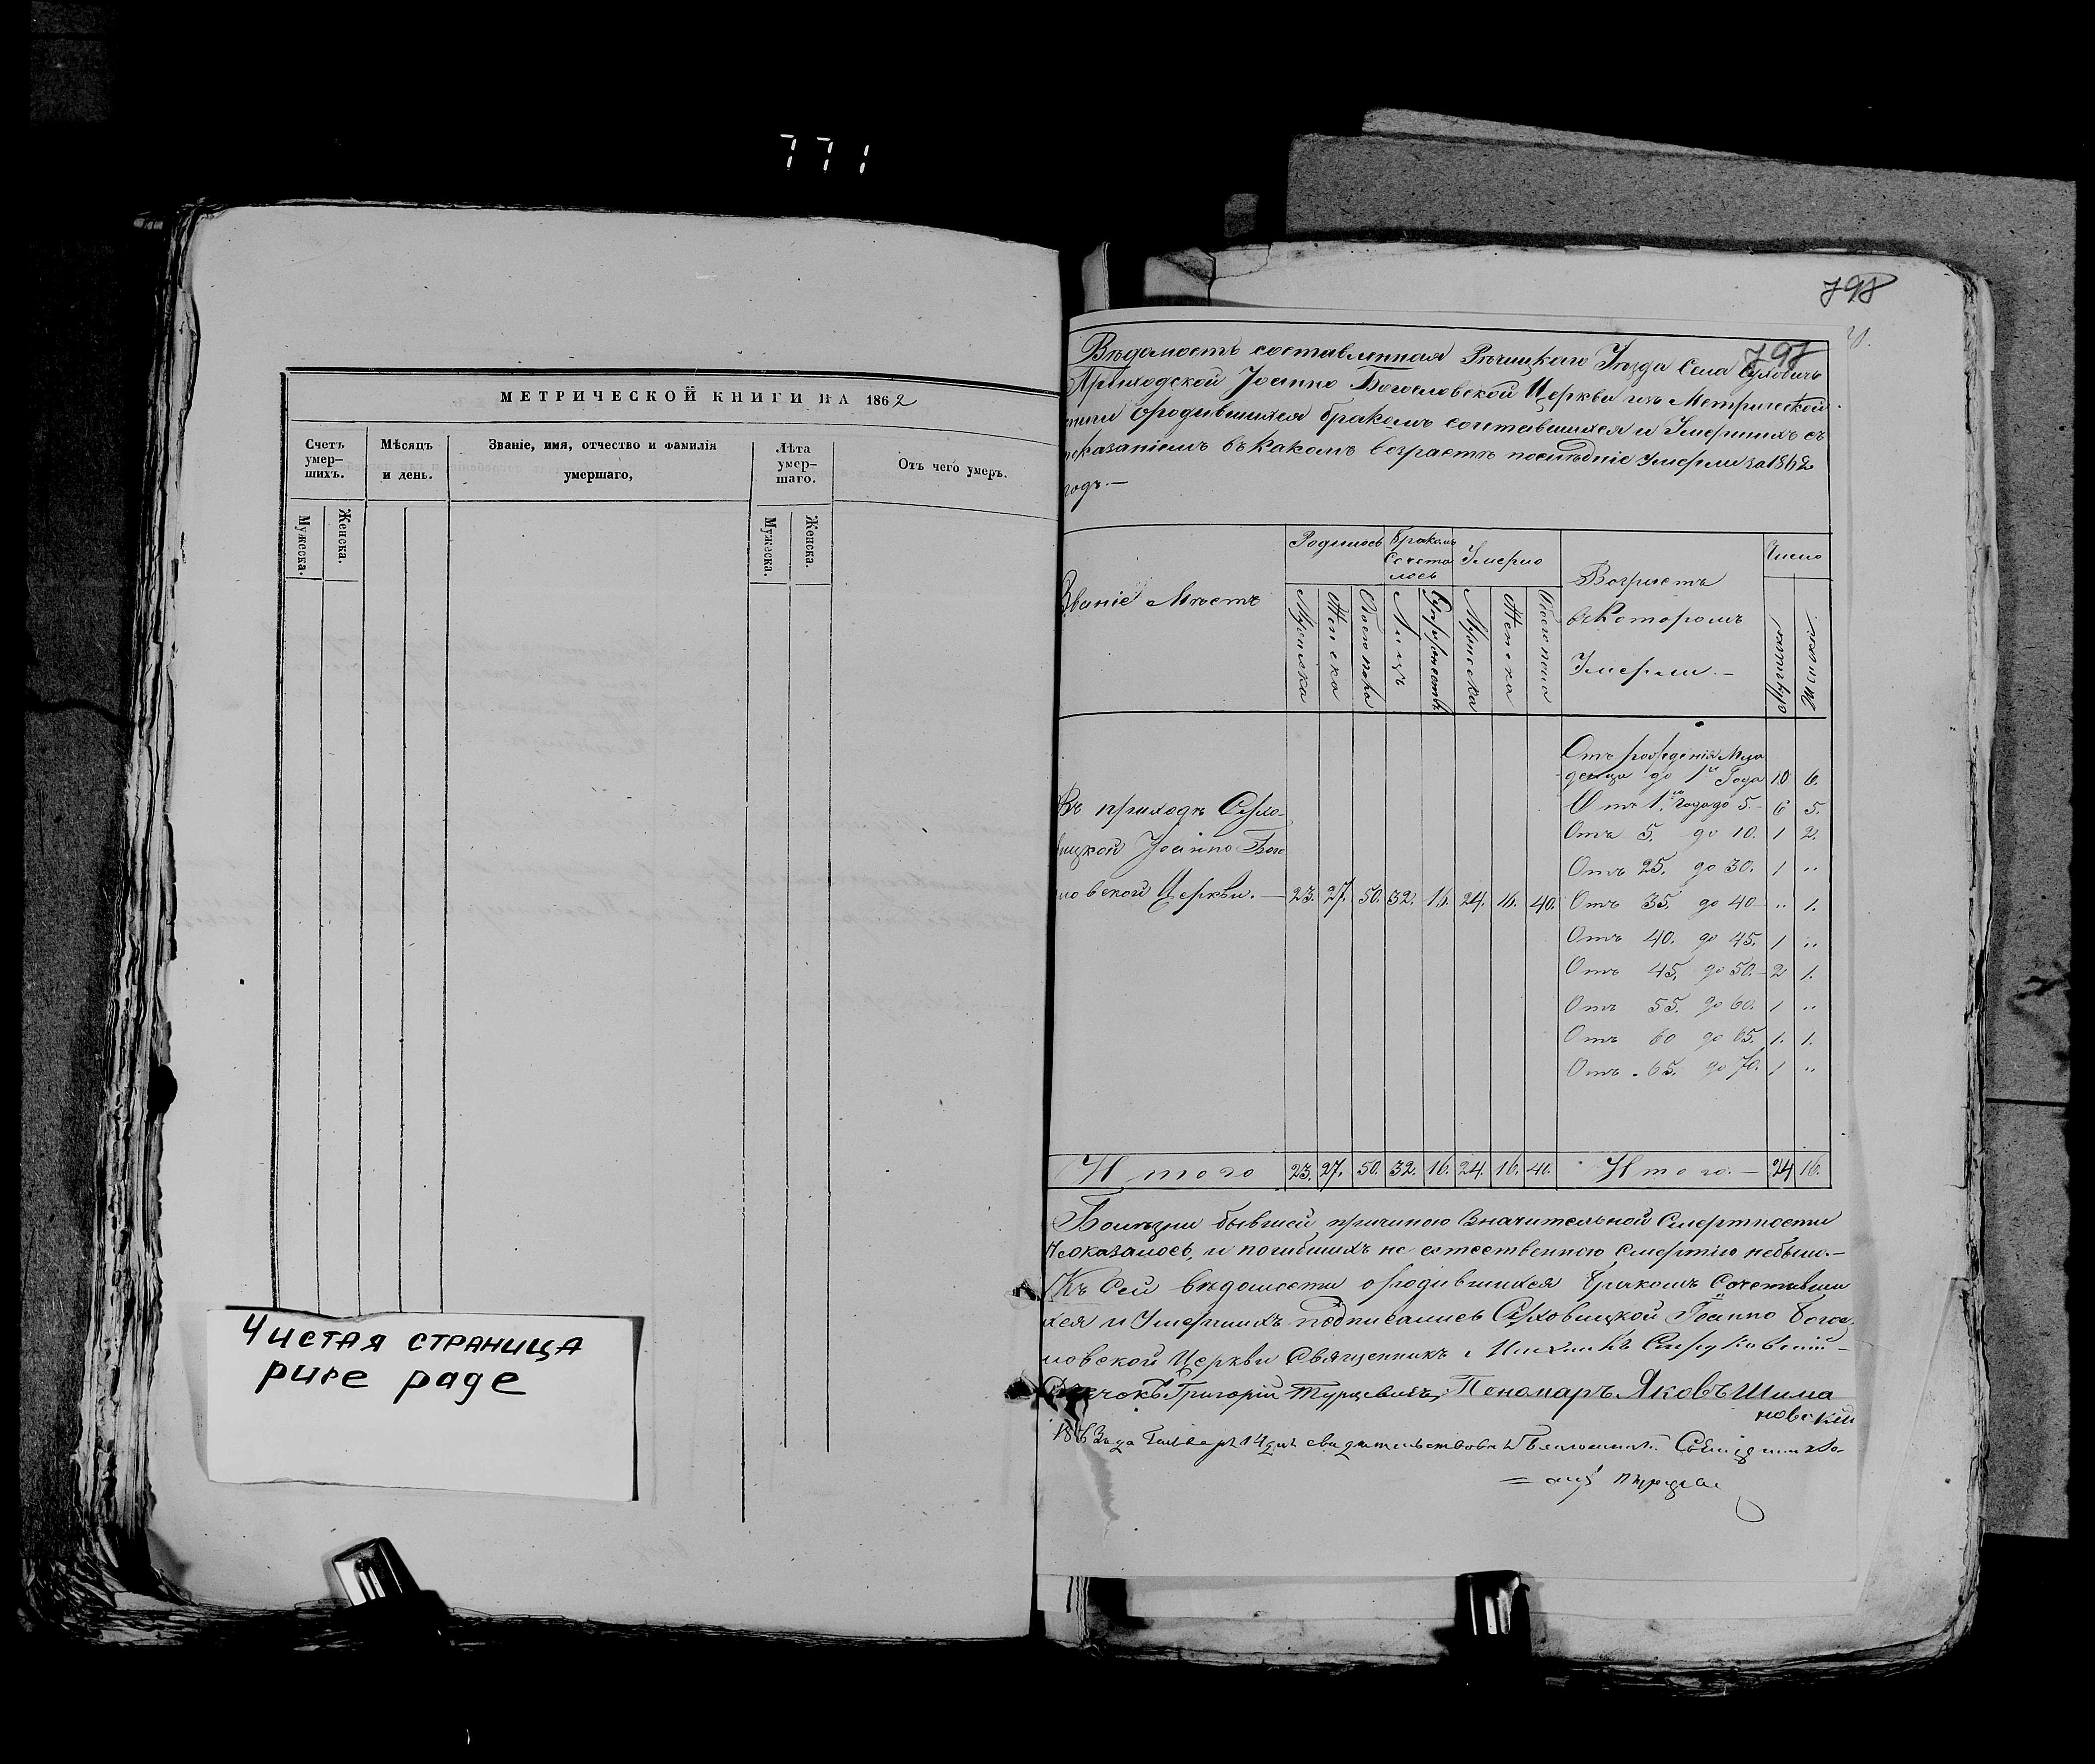 771
МЕТРИЧЕСКОЙ КНИГИ НА 1862
Счетъ умер-шихъ.
Мѣсяцъ и день.
Званіе, имя, отчество и фамилія умершаго,
Лѣта умер-шаго.
Отъ чего умеръ.
Мужеска.
Женска.
Мужеска.
Женска.
Чистая страница
pure page
798
797
Вѣдомость составленная Рѣчицкаго Уѣзда Села
Приходской Іоанно Богословской Церкви изъ Метрической
о родившихся бракомъ сочетавшихся и Умершихъ съ
въ Какомъ возрастѣ послѣдніе Умерли за 1862
годъ.—
Званіе Мѣстъ
Родилось
Бракомъ Сочета лось
Умерло
Возрастъ
въ Которомъ
Умерли.—
Число
Мужеска
Женска
Обоего пола
Лицъ
Супружествъ
Мужеска
Женска
Обоего пола
Отъ рожденія Мла
денца до 1го Года 10 6.
Отъ 1го года до 5.- 6 5.
Отъ 5. до 10. 1 2.
Отъ 25. до 30. 1 "
Въ приходѣ
Іоанно Бого
словской Церкви.— 23. 27. 50. 32. 16. 24. 16. 40. Отъ 35. до 40 " 1.
Отъ 40. до 45. 1 "
Отъ 45. до 50.- 2 1.
Отъ 55. до 60. 1 "
Отъ 60 до 65. 1. 1.
Отъ 65. до 70. 1 "
Итого 23. 27. 50. 32. 16. 24. 16. 40. Итого.— 24 16.
Болѣзни бывшей причиною Значительной Смертности
Неоказалось, и погибшихъ не естественною Смертію небыло.—
Къ Сей вѣдомости о родившихся бракомъ Сочетавши
хся и Умершихъ подписались Іоанно Богос
ловской Церкви Священникъ
Григорій Турцевичъ, Пономарь Яковъ Шима
новскій
1863 года Генваря 14 дня